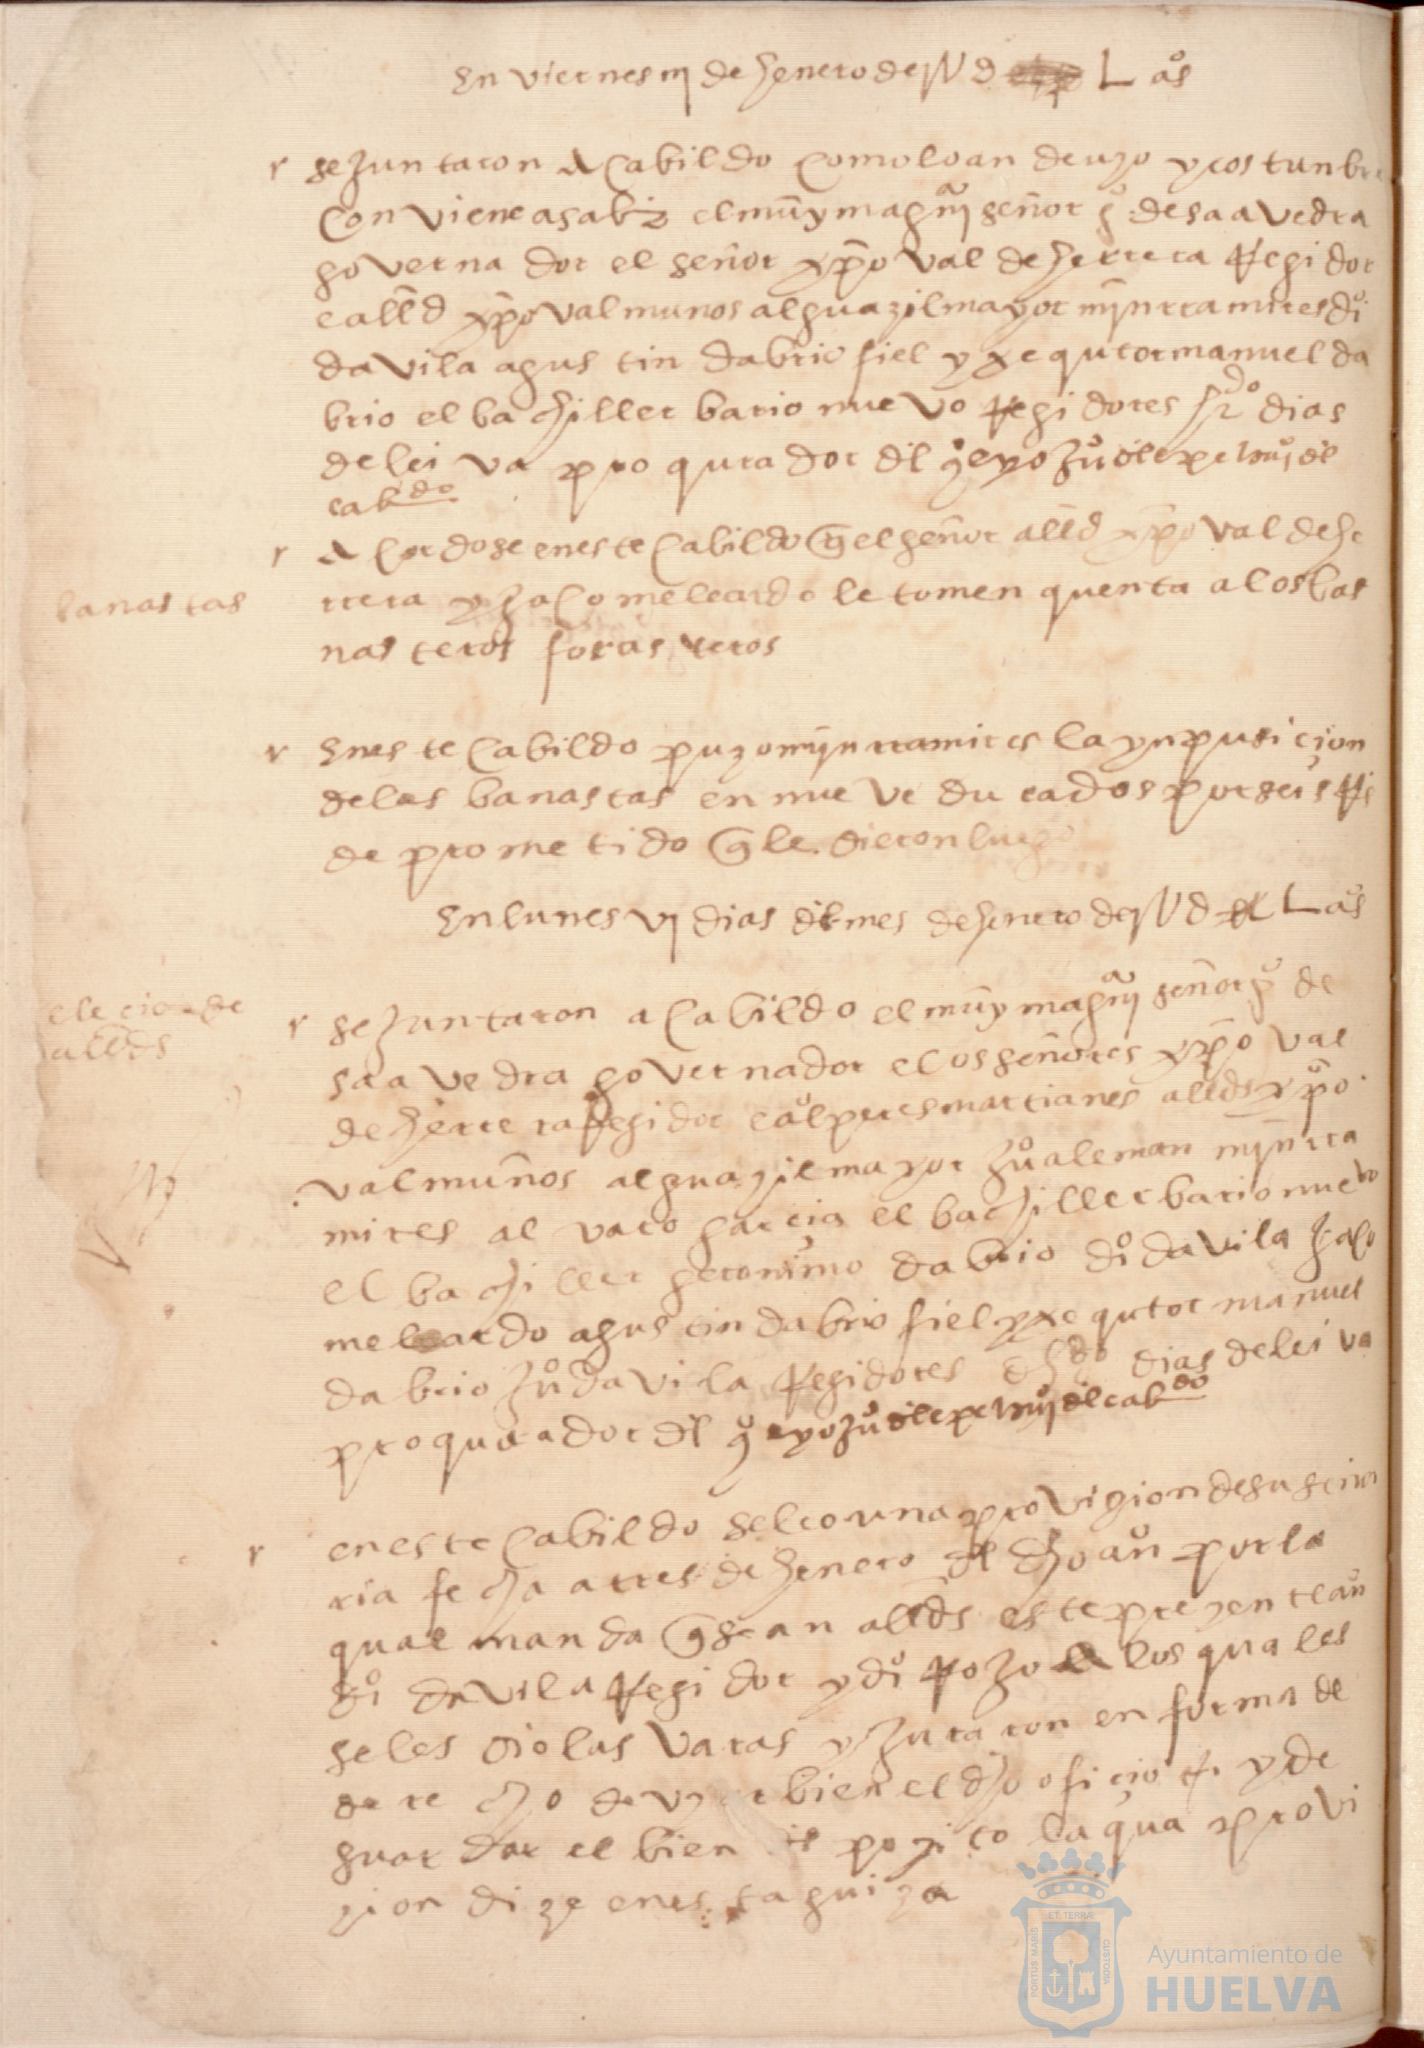 En viernes iij de henero de jUd L aos
r se juntaron a cabildo como lo an de uzo y costunbre
conviene a saber el muy magco señor po de saavedra
governador el señor xpoval de herrera Regidor
e alld xpoval munos alguazil mayor myn rramires do
davila agustin dabrio fiel y xequtor manuel da
brio el bachiller barionuevo Regidores frdo dias
de leiva proqurador dl qo e yo juo de lepe escriuo del
cabdo
r acordose en este cabildo q el señor alld xpoval de he
banastas
rrera y jaco meleardo le tomen quenta a los bas
nasteros forasteros
r En este cabildo puzo myn rramires la ynpusicion
de las banastas en nueve ducados por seis Rs
de prometido q le dieron luego
En lunes vj dias del mes de henero de jUd L aos
elecion de
allds
r se juntaron a cabildo el muy magco señor po de
saavedra governador e los señores xpoval
de herrera Regidor e alo peres martianes allds xpo
val muños alguazil mayor juo aleman myn rra
mires alvaro garcia el bachiller barionuevo
el bachiller geronimo dabrio do davila jaco
meleardo agustin dabrio fiel y xequtor manuel
dabrio juo davila Regidores e frdo dias de leiva
proqurador dl qo e yo juo de lepe escriuo del cabdo
r en este cabildo se leo una provizion de su seño
ria fecha a tres de henero dl dho año por la
qual manda q sean allds este prezente año
do davila Regidor y do Rozo a los quales
se les dio las varas y juraron en forma de
derecho de uzar bien el dho oficio y de
guardar el bien pozito la qual provi
zion dize en esta guiza
PORTUS MARIS ET TERRÆ CUSTODIA
Ayuntamiento de
HUELVA